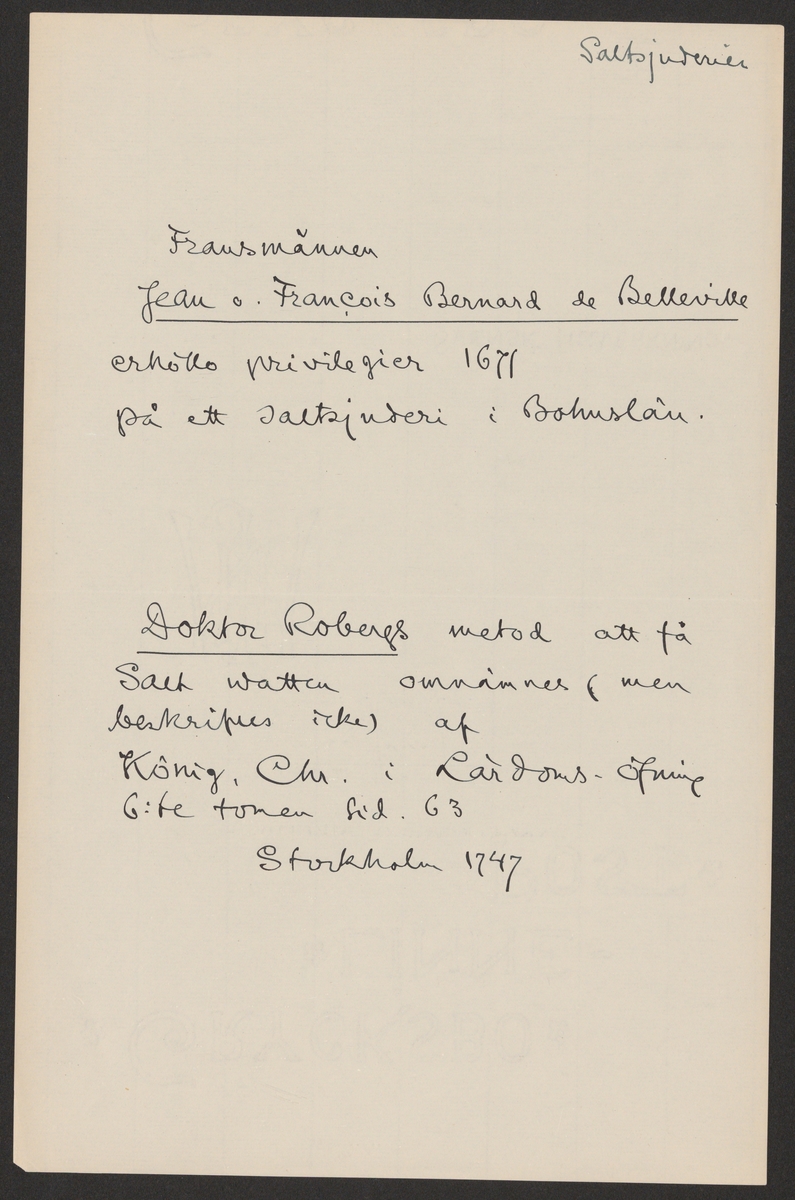 Saltsjuderier
Fransmännen
Jean o. François Bernard de Belleville
erhöllo privilegier 1671
på ett saltsjuderi i Bohuslän.
Doktor Robergs metod att få
Salt watten omnämnes (men
beskrifves icke) af
König, Chr. i Lärdoms-öfning
6:te tomen sid. 63
Stockholm 1747